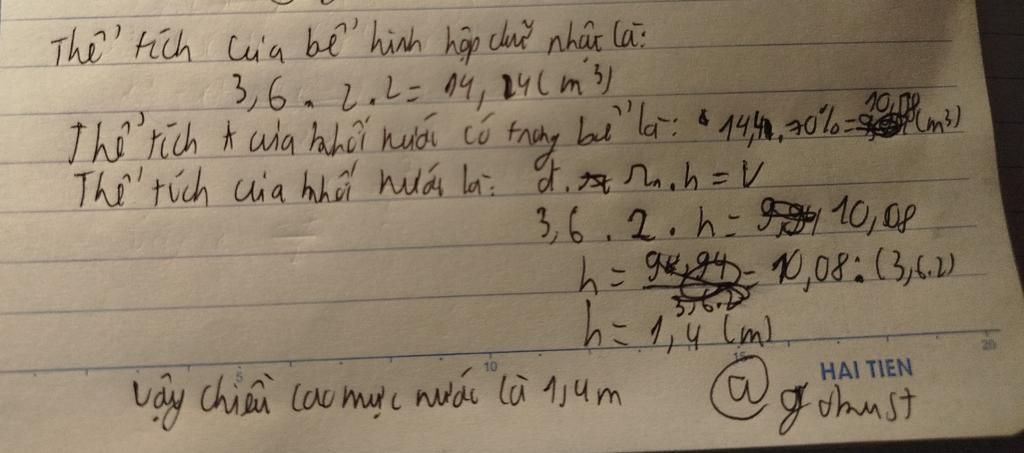 Thể tích của bể hình hộp chữ nhật là:
3,6 . 2 . 2 = 14,24 (m³)
Thể tích của khối nước có trong bể là: 14,4 . 70% = 10,08 (m³)
Thể tích của khối nước là: d . r . h = V
3,6 . 2 . h = 10,08
h = 10,08 : (3,6.2)
h = 1,4 (m)
5 10 15 20
HAI TIEN
Vậy chiều cao mực nước là 1,4m
@